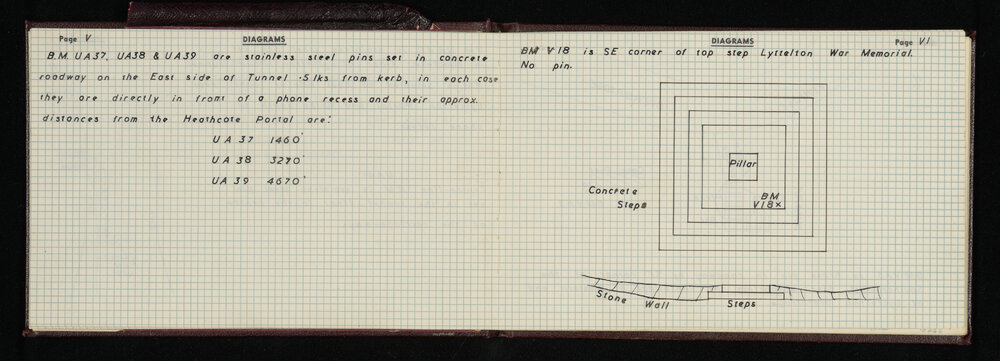 Page V
DIAGRAMS
B.M. UA37, UA38 & UA39 are stainless steel pins set in concrete
roadway on the East side of Tunnel .5lks from kerb, in each case
they are directly in front of a phone recess and their approx.
distances from the Heathcote Portal are:
UA 37 1460'
UA 38 3270'
UA 39 4670'
DIAGRAMS
Page VI
BM V18 is SE corner of top step Lyttelton War Memorial.
No pin.
Pillar
BM
V18×
Concrete
Steps
Stone Wall Steps